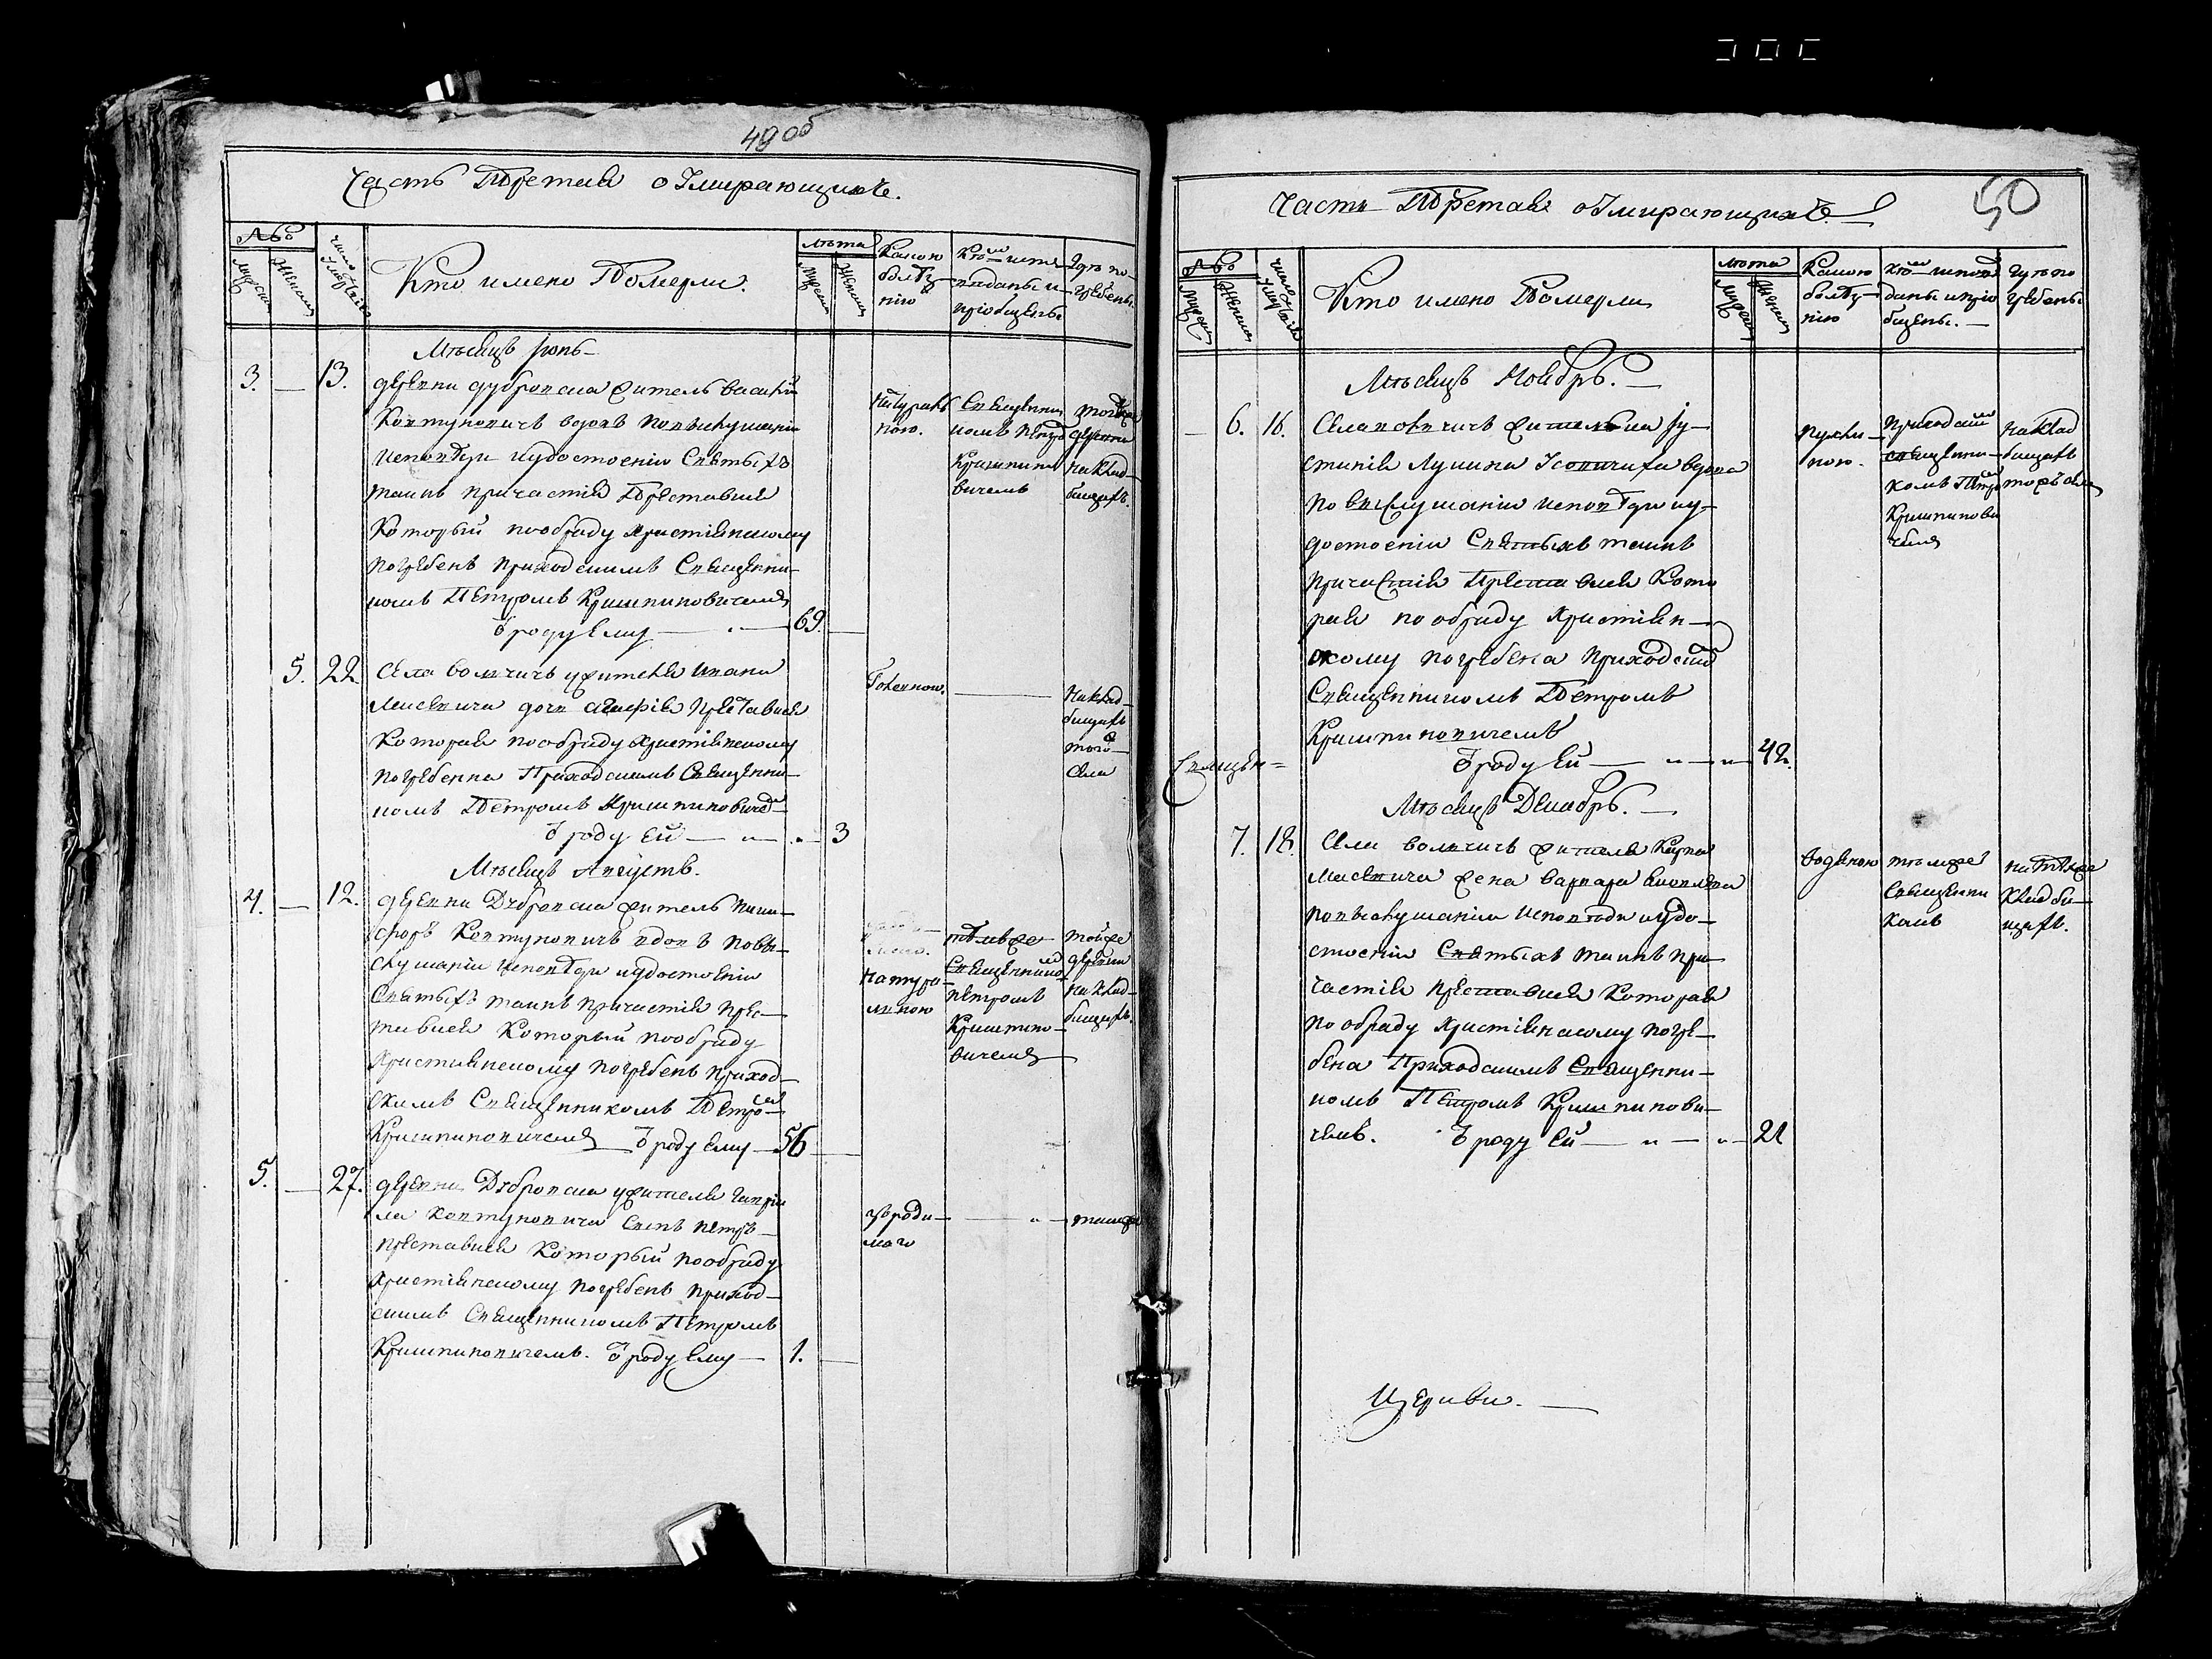 49 об
Часть Третия о Умирающихъ.
№
мужска
женска
число умертвія
Кто имено Померли.
лѣта
мужска
женска
Какою
болѣз
нію
Кѣмъ испо
виданы и
пріобщены
Гдѣ по
гребены
Мѣсяцъ Іюнь
3. — 13.
деревни Дубровска житель Василій
Ковтуновичъ вдовъ По выслушаніи
Исповѣди и удостоеніи Святыхъ
таинъ причастія Преставися
Который по обряду христіянскому
погребенъ Приходскимъ Священни-
комъ Петромъ Кришпиновичемъ
Ѿ роду Ему — 69.
Натураль
ною.
Священни
комъ Петро
Кришпино
вичемъ
тоейже
деревни
на Клад
бищахъ.
5. 22
Села Волчичъ жителя Ивана
Мисевича дочь Агафія Преставися
Которая по обряду христіянскому
погребенна Приходскимъ Священни-
комъ Петромъ Кришпинович
Ѿ роду Ей — 3
На Клад
бищахъ
того
села
Мѣсяцъ Августъ.
4. — 12.
деревни Дубровска житель Ники-
форъ Ковтуновичъ вдовъ по вы-
слушаніи Исповѣди и удостоеніи
Святыхъ таинъ причастія Прес-
тавися Который по обряду
Христіянскому погребенъ приход-
скимъ Священникомъ Петро
Кришпиновичемъ Ѿ роду Ему — 56
Натура
льною
тѣмже
Священнико
Петромъ
Кришпино
вичемъ
тойже
деревни
на Клад
бищахъ.
5. — 27.
деревни Дубровска жителя Гаври
ла Ковтуновича Сынъ Петръ
Преставися Который по обряду
Христіянскому погребенъ приход-
скимъ Священникомъ Петромъ
Кришпиновичемъ. Ѿ роду Ему — 1.
зъ роди
маго
тамже
50
Часть Третая о Умирающихъ
№
мужска
женска
число умертвія
Кто имено Померли
лѣта
мужска
женска
Какою
болѣз
нію
кѣмъ испов
даны и пріо
бщены. —
Гдѣ по
гребены
Мѣсяцъ Ноябрь. —
— 6. 16.
Села Волчичъ жителька Іу-
стинія Лукина вдова
По выслушаніи исповѣди и у-
достоеніи Святыхъ таинъ
причастія Преставися Кото
рая по обряду Христіян-
скому погребена Приходским
Священникомъ Петромъ
Кришпиновичемъ
Ѿ роду Ей — 42.
Пухли
ною.
Приходским
священни-
комъ Петро
Кришпинови
чемъ
на Клад
бищахъ
тогѡ села
Священ=
Мѣсяцъ Декабрь. —
7. 18.
Села Волчичъ жителя Карпа
Мисевича жена Варвара
по выслушаніи Исповѣди и удо-
стоеніи Святыхъ таинъ при-
частія преставися Которая
по обряду Христіянскому погре-
бена Приходскимъ Священни-
комъ Петромъ Кришпинови-
чемъ. Ѿ роду Ей — 21
водяною
тѣмже
Священни
комъ
на тѣхже
Кладби-
щахъ.
Церкви. —